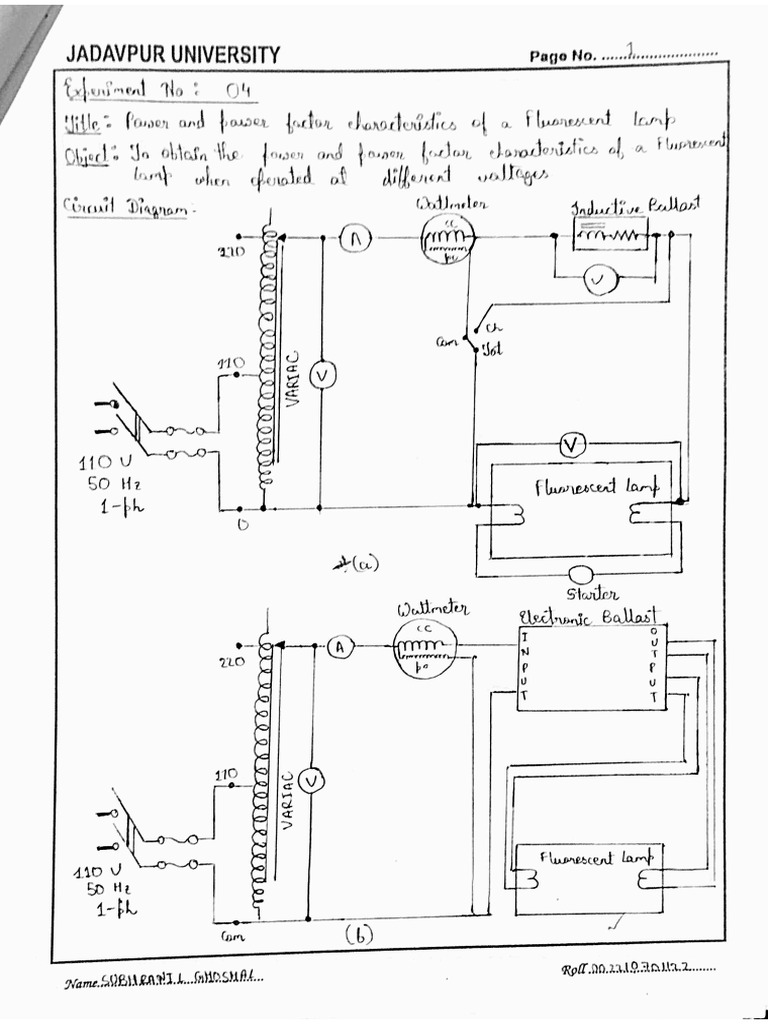 JADAVPUR UNIVERSITY
Page No. ......1...................
Experiment No : 04
Title :- Power and power factor characteristics of a Fluorescent Lamp
Object :- To obtain the power and power factor characteristics of a Fluorescent
Lamp when operated at different voltages
Circuit Diagram :-
Wattmeter
Inductive Ballast
CC
A
PC
V
Ch
Com
Tot
110
V
VARIAC
V
110 V
50 Hz
1-ph
Fluorescent Lamp
0
(a)
Starter
Wattmeter
Electronic Ballast
CC
A
PC
INPUT
OUTPUT
220
V
VARIAC
110 V
50 Hz
1-ph
Fluorescent Lamp
Com
(b)
Name.
GHOSHAL
Roll.